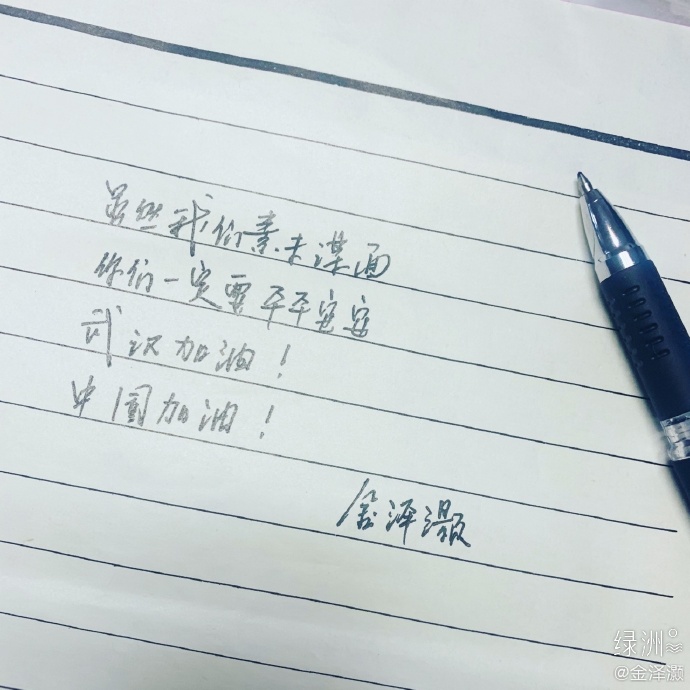 虽然我们素未谋面
你们一定要平平安安
武汉加油！
中国加油！
金泽灏
绿洲
@金泽灏